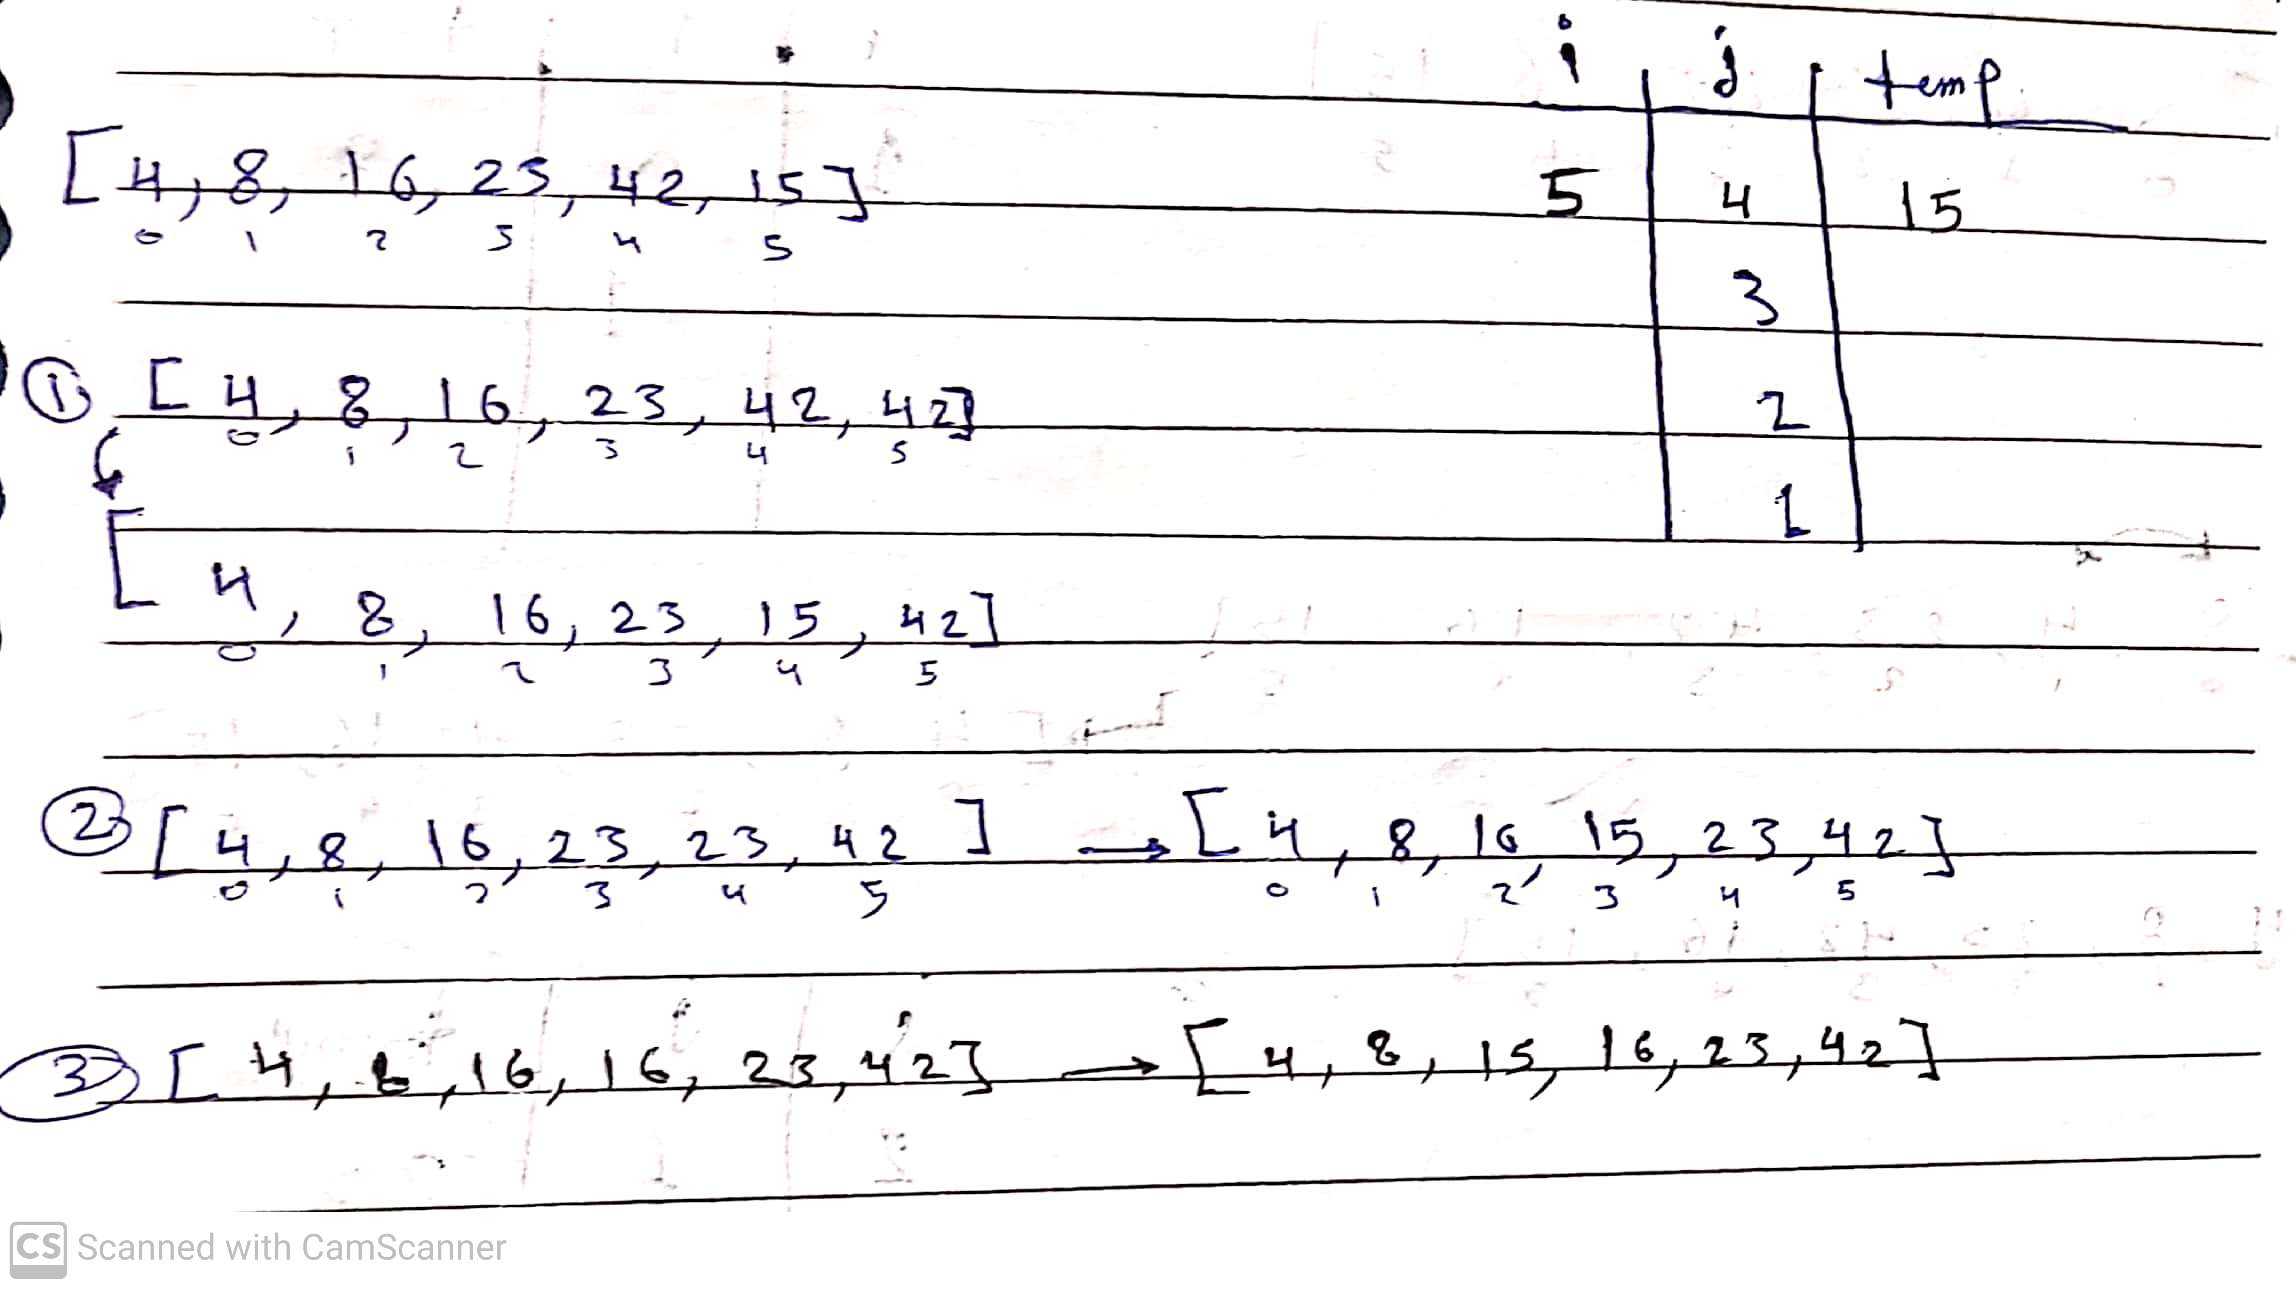 i j temp
[4, 8, 16, 23, 42, 15] 5 4 15
0 1 2 3 4 5
3
① [4, 8, 16, 23, 42, 42] 2
0 1 2 3 4 5
1
[4, 8, 16, 23, 15, 42]
0 1 2 3 4 5
② [4, 8, 16, 23, 23, 42] → [4, 8, 16, 15, 23, 42]
0 1 2 3 4 5 0 1 2 3 4 5
③ [4, 8, 16, 16, 23, 42] → [4, 8, 15, 16, 23, 42]
CS Scanned with CamScanner